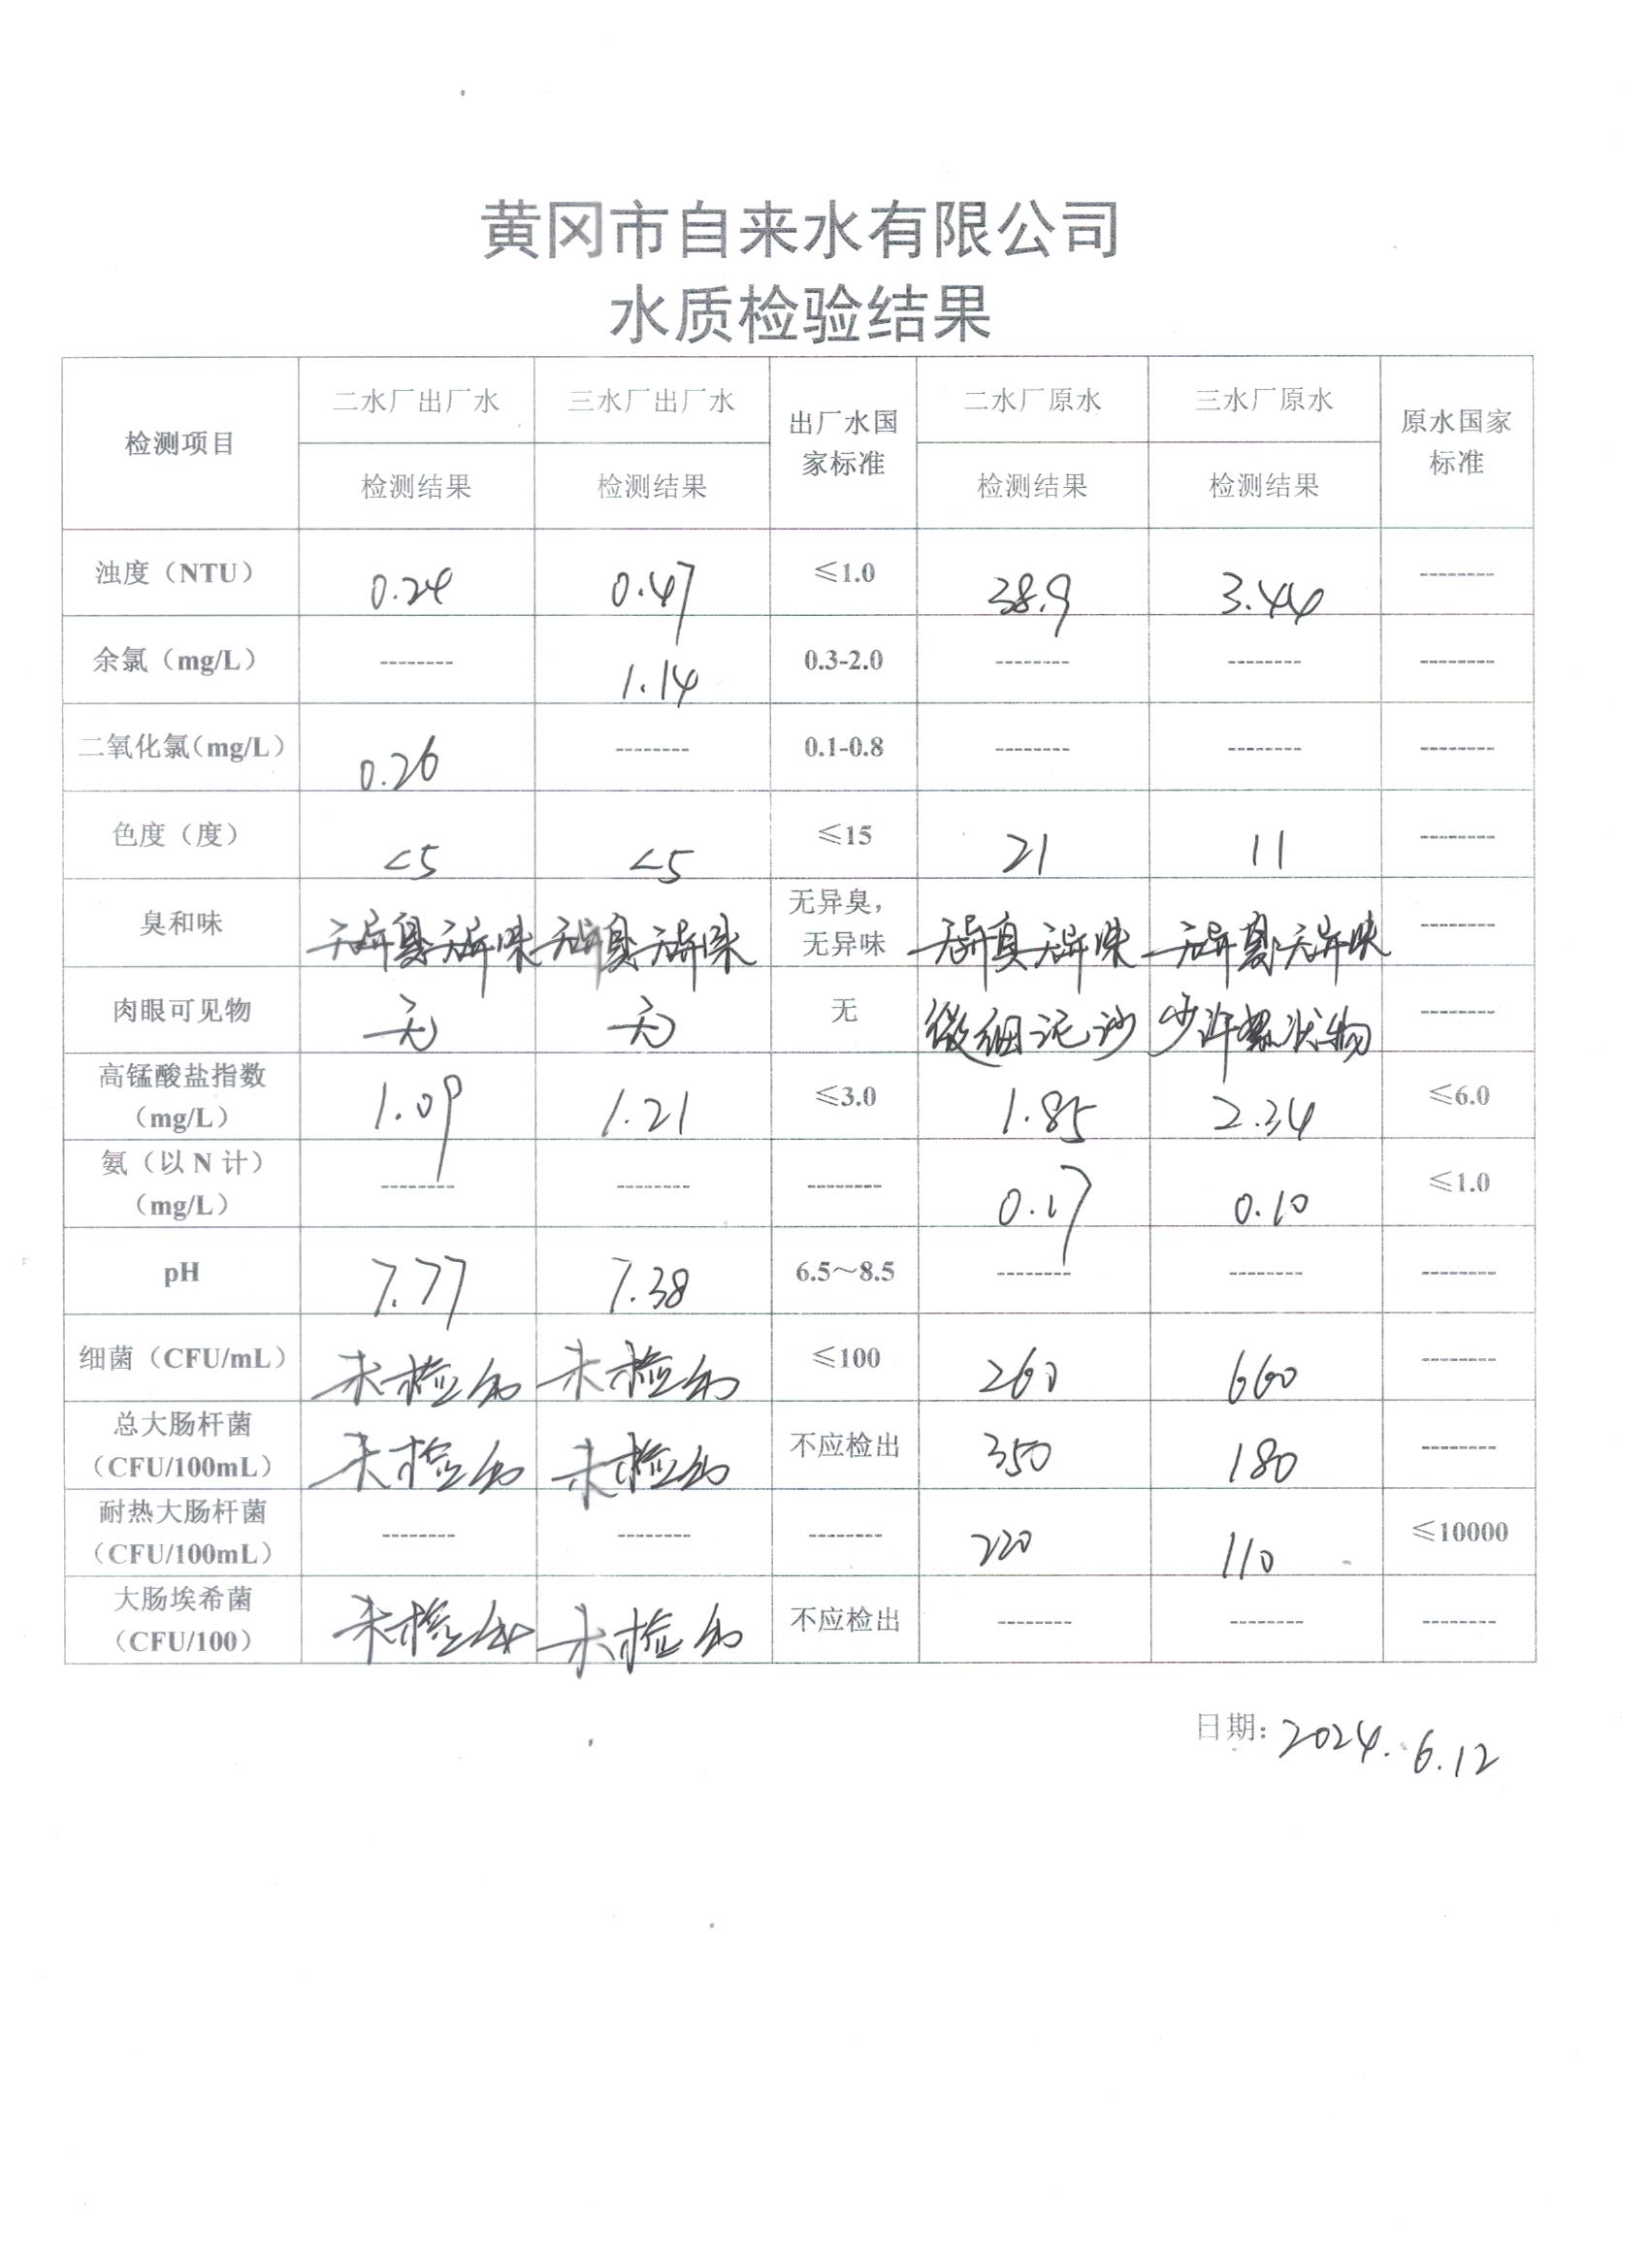 黄冈市自来水有限公司
水质检验结果
检测项目 二水厂出厂水 三水厂出厂水 出厂水国家标准 二水厂原水 三水厂原水 原水国家标准
检测结果 检测结果 检测结果 检测结果
浊度（NTU） 0.24 0.47 ≤1.0 38.9 3.44 --------
余氯（mg/L） -------- 1.14 0.3-2.0 -------- -------- --------
二氧化氯（mg/L） 0.26 -------- 0.1-0.8 -------- -------- --------
色度（度） <5 <5 ≤15 21 11 --------
臭和味 无异臭无异味 无异臭无异味 无异臭，无异味 无异臭无异味 无异臭无异味 --------
肉眼可见物 无 无 无 微细泥沙 少许状物 --------
高锰酸盐指数（mg/L） 1.09 1.21 ≤3.0 1.85 2.34 ≤6.0
氨（以 N 计）（mg/L） -------- -------- -------- 0.17 0.10 ≤1.0
pH 7.77 7.38 6.5～8.5 -------- -------- --------
细菌（CFU/mL） 未检出 未检出 ≤100 260 660 --------
总大肠杆菌（CFU/100mL） 未检出 未检出 不应检出 350 180 --------
耐热大肠杆菌（CFU/100mL） -------- -------- -------- 220 110 ≤10000
大肠埃希菌（CFU/100） 未检出 未检出 不应检出 -------- -------- --------
日期：2024.6.12